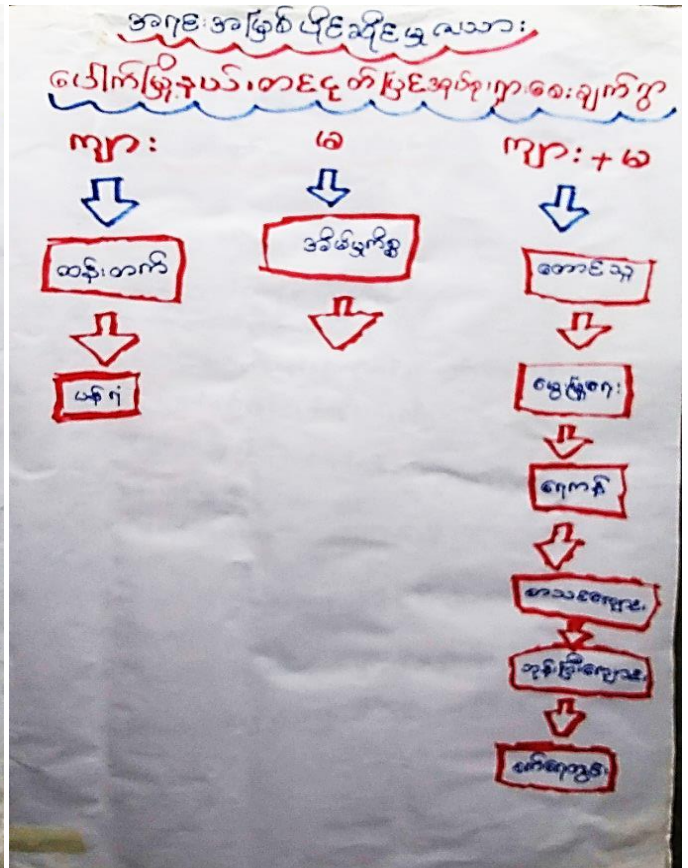 အရင်းအမြစ်ပိုင်ဆိုင်မှုဇယား
ပေါက်မြို့နယ်၊တင်ငုတ်ပြင်အုပ်စု၊ရှားစေးချက်ရွာ
ကျား မ ကျား + မ
ထန်းတက်
ပန်ရံ
အိမ်မှုကိစ္စ
တောင်သူ
မွေးမြူရေး
ရေကန်
စာသင်ကျောင်း
ဘုန်းကြီးကျောင်း
စက်ရေတွင်း